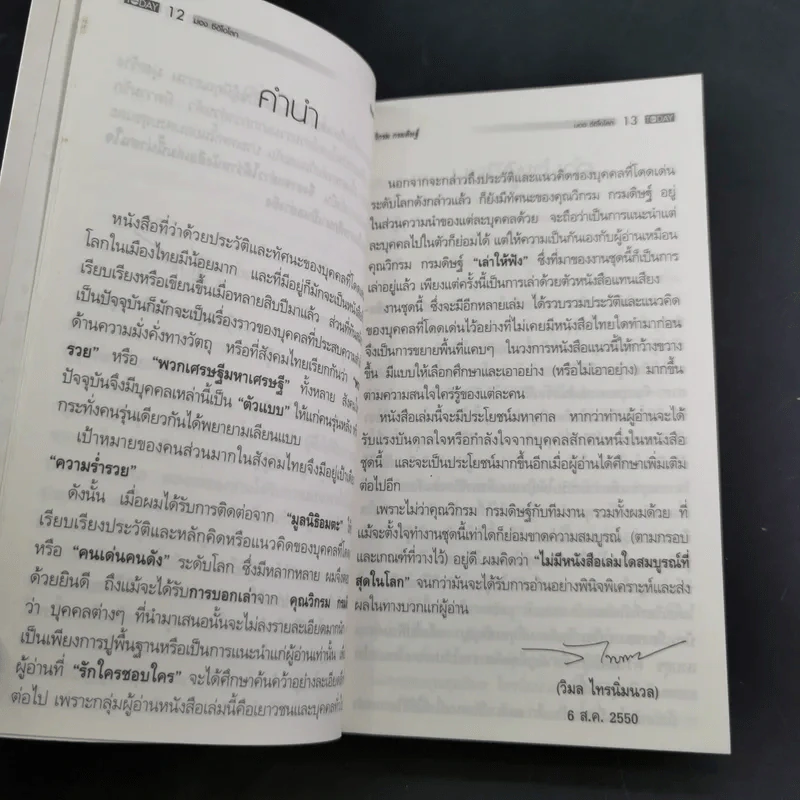 TODAY 12 มอง ซีอีโอโลก
คำนำ
หนังสือที่ว่าด้วยประวัติและทัศนะของบุคคลที่โดดเด่น
โลกในเมืองไทยมีน้อยมาก และที่มีอยู่ก็มักจะเป็นหนังสือ
เรียบเรียงหรือเขียนขึ้นเมื่อหลายสิบปีมาแล้ว ส่วนที่
เป็นปัจจุบันก็มักจะเป็นเรื่องราวของบุคคลที่ประสบความสำเร็จ
ด้านความมั่งคั่งทางวัตถุ หรือที่สังคมไทยเรียกกันว่า
รวย" หรือ "พวกเศรษฐีมหาเศรษฐี" ทั้งหลาย
ปัจจุบันจึงมีบุคคลเหล่านี้เป็น "ตัวแบบ" ให้แก่คนรุ่นหลัง
กระทั่งคนรุ่นเดียวกันได้พยายามเลียนแบบ
เป้าหมายของคนส่วนมากในสังคมไทยจึงมีอยู่
"ความร่ำรวย"
ดังนั้น เมื่อผมได้รับการติดต่อจาก "มูลนิธิอมตะ"
เรียบเรียงประวัติและหลักคิดหรือแนวคิดของบุคคลที่
หรือ "คนเด่นคนดัง" ระดับโลก ซึ่งมีหลากหลาย
ด้วยยินดี ถึงแม้จะได้รับการบอกเล่าจาก คุณวิกรม
ว่า บุคคลต่างๆ ที่นำมาเสนอนั้นจะไม่ลงรายละเอียดมาก
เป็นเพียงการปูพื้นฐานหรือเป็นการแนะนำแก่ผู้อ่านเท่านั้น
ผู้อ่านที่ "รักใครชอบใคร" จะได้ศึกษาค้นคว้าอย่างละเอียด
ต่อไป เพราะกลุ่มผู้อ่านหนังสือเล่มนี้คือเยาวชนและบุคคล
วิกรม กรมดิษฐ์ มอง ซีอีโอโลก 13 TODAY
นอกจากจะกล่าวถึงประวัติและแนวคิดของบุคคลที่โดดเด่น
ระดับโลกดังกล่าวแล้ว ก็ยังมีทัศนะของคุณวิกรม กรมดิษฐ์ อยู่
ในส่วนความนำของแต่ละบุคคลด้วย จะถือว่าเป็นการแนะนำแต่
ละบุคคลไปในตัวก็ย่อมได้ แต่ให้ความเป็นกันเองกับผู้อ่านเหมือน
คุณวิกรม กรมดิษฐ์ "เล่าให้ฟัง" ซึ่งที่มาของงานชุดนี้ก็เป็นการ
เล่าอยู่แล้ว เพียงแต่ครั้งนี้เป็นการเล่าด้วยตัวหนังสือแทนเสียง
งานชุดนี้ ซึ่งจะมีอีกหลายเล่ม ได้รวบรวมประวัติและแนวคิด
ของบุคคลที่โดดเด่นไว้อย่างที่ไม่เคยมีหนังสือไทยใดทำมาก่อน
จึงเป็นการขยายพื้นที่แคบๆ ในวงการหนังสือแนวนี้ให้กว้างขวาง
ขึ้น มีแบบให้เลือกศึกษาและเอาอย่าง (หรือไม่เอาอย่าง) มากขึ้น
ตามความสนใจใคร่รู้ของแต่ละคน
หนังสือเล่มนี้จะมีประโยชน์มหาศาล หากว่าท่านผู้อ่านจะได้
รับแรงบันดาลใจหรือกำลังใจจากบุคคลสักคนหนึ่งในหนังสือ
ชุดนี้ และจะเป็นประโยชน์มากขึ้นอีกเมื่อผู้อ่านได้ศึกษาเพิ่มเติม
ต่อไปอีก
เพราะไม่ว่าคุณวิกรม กรมดิษฐ์กับทีมงาน รวมทั้งผมด้วย ที่
แม้จะตั้งใจทำงานชุดนี้เท่าใดก็ย่อมขาดความสมบูรณ์ (ตามกรอบ
และเกณฑ์ที่วางไว้) อยู่ดี ผมคิดว่า "ไม่มีหนังสือเล่มใดสมบูรณ์ที่
สุดในโลก" จนกว่ามันจะได้รับการอ่านอย่างพินิจพิเคราะห์และส่ง
ผลในทางบวกแก่ผู้อ่าน
(วิมล ไทรนิ่มนวล)
6 ส.ค. 2550